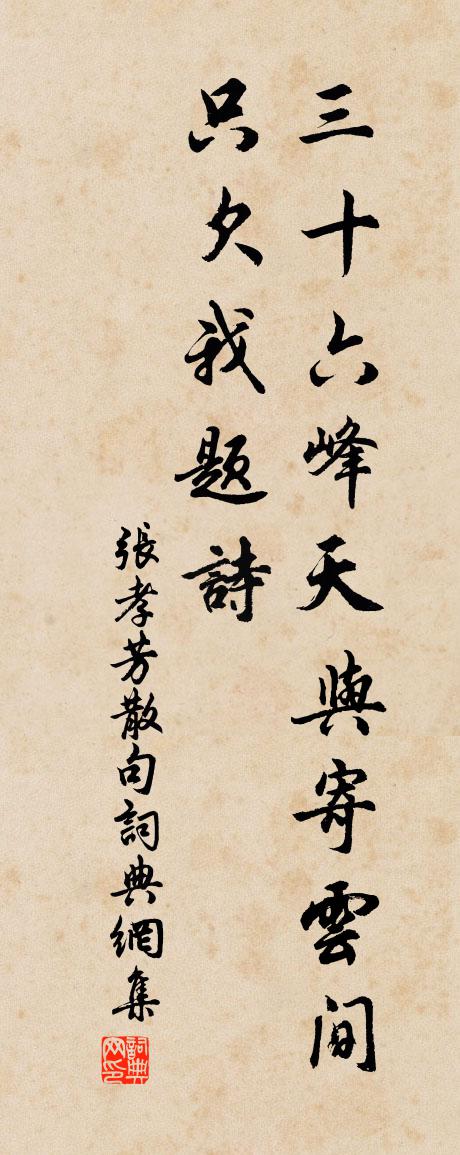 三十六峰天與寄雲間
只欠我題詩
張孝芳散句詞典網集
詞典网印